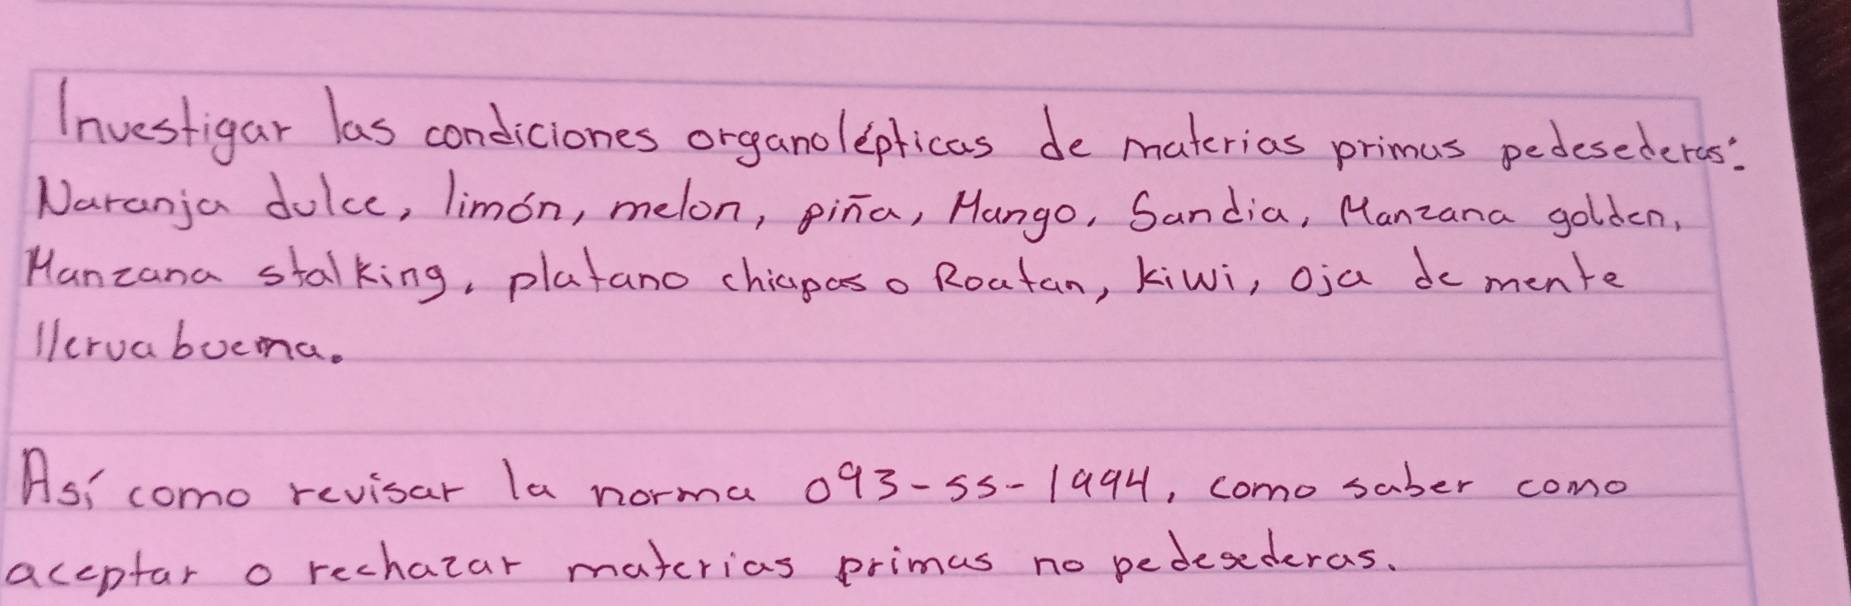 Investigar las condiciones organolépticas de materias primas pedesederas:
Naranja dulce, limón, melon, piña, Mango, Sandia, Manzana golden,
Manzana stalking, platano chiapas o Roatan, kiwi, oja de mente
llerva buema.
Así como revisar la norma 093-ss-1994, como saber como
aceptar o rechazar materias primas no pedesederas.